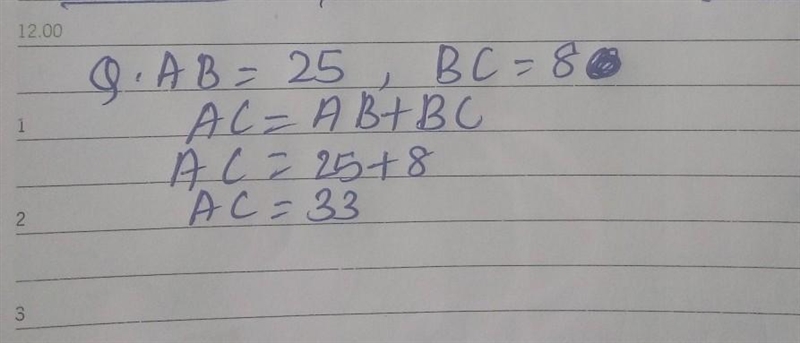 12.00
Q. AB = 25 , BC = 8
1
AC = AB + BC
AC = 25 + 8
2
AC = 33
3